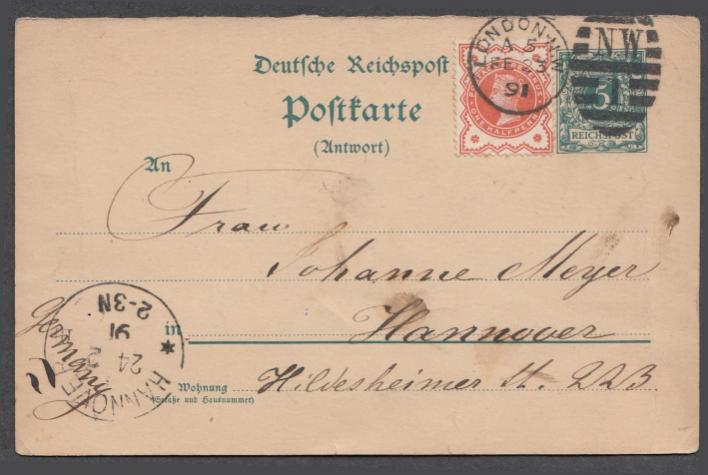 LONDON·N.W
A 5
FE 23
91
NW
Deutsche Reichspost
Postkarte
(Antwort)
ONE HALFPENNY
5
REICHSPOST
An
Frau
Johanne Meyer
in Hannover
Wohnung
(Straße und Hausnummer)
Hildesheimer St. 223.
Germany
HANNOVER
24
2
91
2-3N